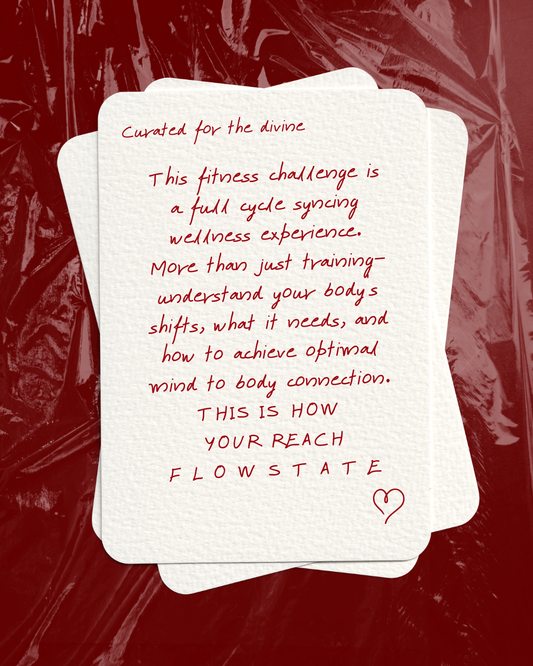 Curated for the divine
This fitness challenge is
a full cycle syncing
wellness experience.
More than just training-
understand your body's
shifts, what it needs, and
how to achieve optimal
mind to body connection.
THIS IS HOW
YOUR REACH
FLOWSTATE